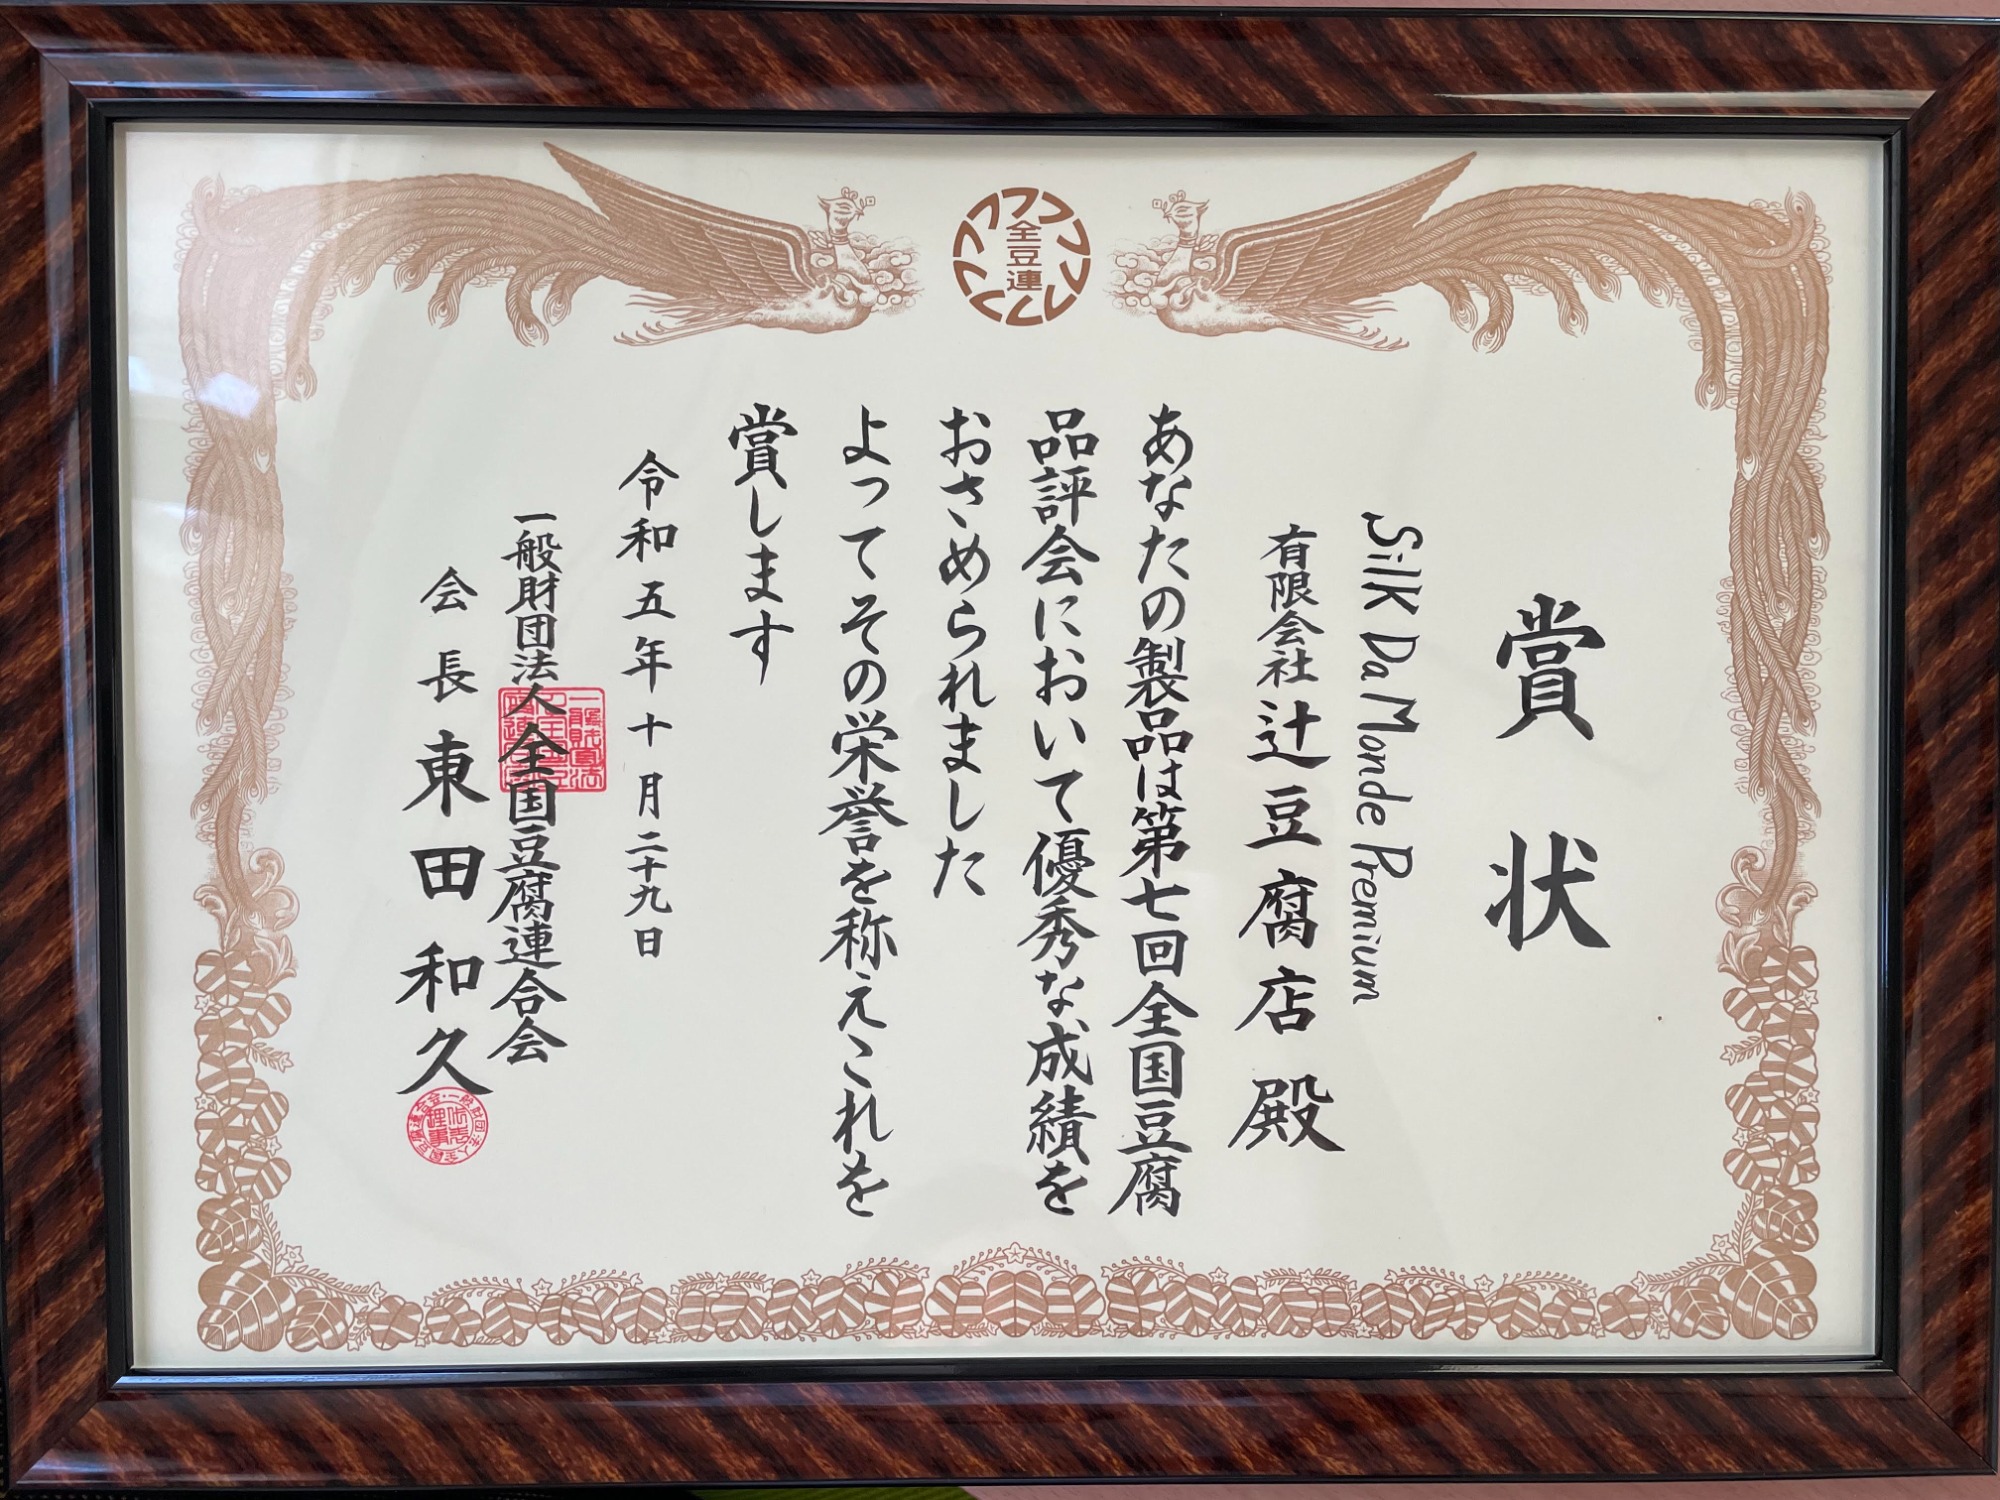 全豆連
賞状
Silk Da Monde Premium
有限会社 辻豆腐店 殿
あなたの製品は第七回全国豆腐
品評会において優秀な成績を
おさめられました
よってその栄誉を称えこれを
賞します
令和五年十月二十九日
一般財団法人全国豆腐連合会
会長 東田和久